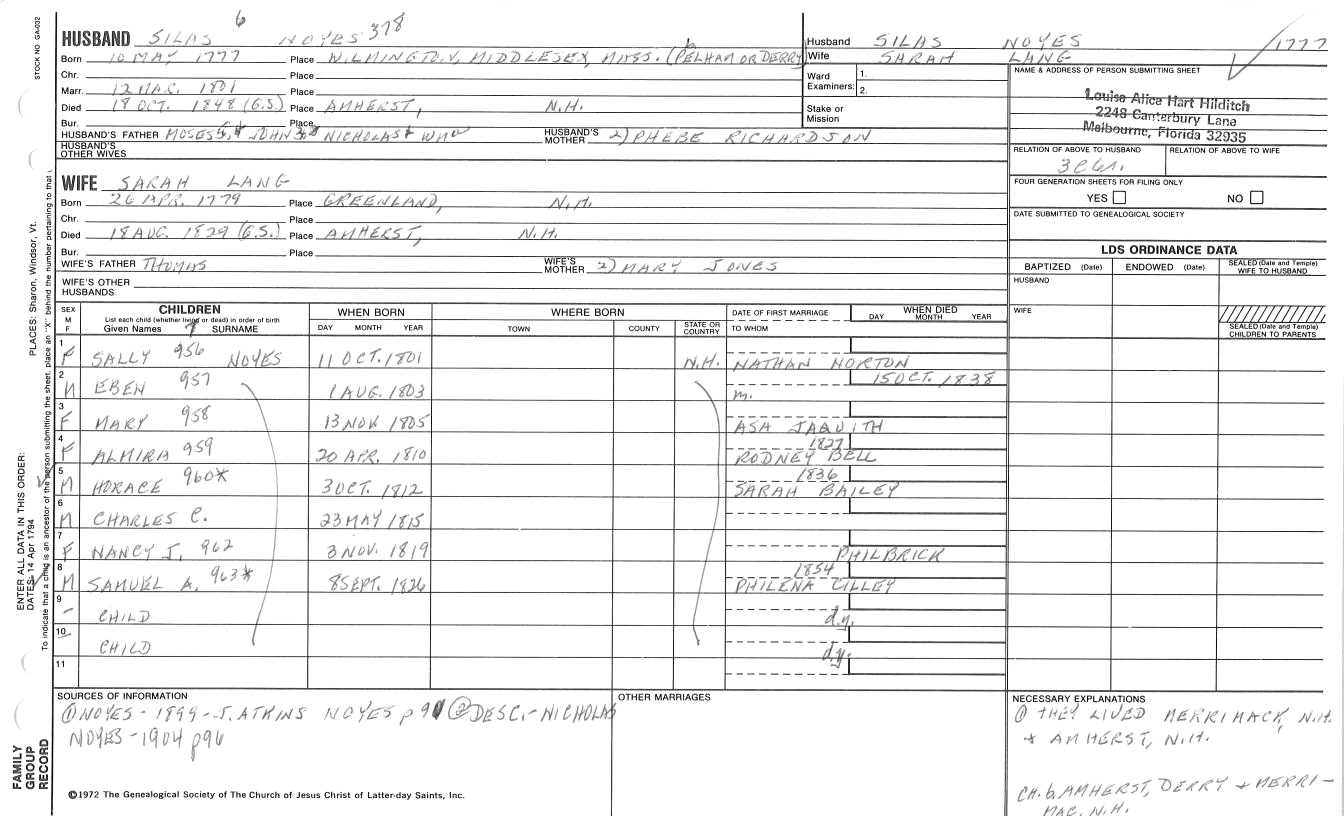 STOCK NO. GA-032
HUSBAND SILAS 6 NOYES 378
Born 10 MAY 1777 Place WILMINGTON, MIDDLESEX, MASS. (b PELHAM OR DERRY)
Chr. Place
Marr. 12 MAR. 1801 Place
Died 18 OCT. 1848 (G.S.) Place AMHERST, N.H.
Bur. Place
HUSBAND'S FATHER MOSES 5, 4 JOHN 3 NICHOLAS HUSBAND'S MOTHER 2) PHEBE RICHARDSON
HUSBAND'S OTHER WIVES
Husband SILAS NOYES 1777
Wife SARAH LANG
Ward Examiners: 1.
2.
Stake or Mission
NAME & ADDRESS OF PERSON SUBMITTING SHEET
Louise Alice Hart Hilditch
2248 Canterbury Lane
Melbourne, Florida 32935
RELATION OF ABOVE TO HUSBAND RELATION OF ABOVE TO WIFE
FOUR GENERATION SHEETS FOR FILING ONLY
YES NO
DATE SUBMITTED TO GENEALOGICAL SOCIETY
WIFE SARAH LANG
Born 26 APR. 1779 Place GREENLAND, N.H.
Chr. Place
Died 18 AUG. 1829 (G.S.) Place AMHERST, N.H.
Bur. Place
WIFE'S FATHER THOMAS WIFE'S MOTHER 2) MARY JONES
WIFE'S OTHER HUSBANDS
LDS ORDINANCE DATA
BAPTIZED (Date) ENDOWED (Date) SEALED (Date and Temple) WIFE TO HUSBAND
HUSBAND
WIFE
SEALED (Date and Temple) CHILDREN TO PARENTS
SEX M F CHILDREN WHEN BORN WHERE BORN DATE OF FIRST MARRIAGE WHEN DIED
List each child (whether living or dead) in order of birth
Given Names 7 SURNAME DAY MONTH YEAR TOWN COUNTY STATE OR COUNTRY TO WHOM DAY MONTH YEAR
1 F SALLY 956 NOYES 11 OCT. 1801 N.H. NATHAN NORTON
2 M EBEN 957 1 AUG. 1803 m. 15 OCT. 1838
3 F MARY 958 13 NOV. 1805 ASA JAQUITH
4 F ALMIRA 959 20 APR. 1810 1827 RODNEY BELL
5 M HORACE 960* 3 OCT. 1812 1836 SARAH BAILEY
6 M CHARLES C. 23 MAY 1815
7 F NANCY J. 962 3 NOV. 1819 PHILBRICK
8 M SAMUEL A. 963* 8 SEPT. 1826 1854 PHILENA CILLEY
9 – CHILD d.y.
10 – CHILD d.y.
11
SOURCES OF INFORMATION
① NOYES - 1899 - J. ATKINS NOYES p 91 ② DESC. - NICHOLAS
NOYES - 1904 p96
©1972 The Genealogical Society of The Church of Jesus Christ of Latter-day Saints, Inc.
OTHER MARRIAGES
NECESSARY EXPLANATIONS
① THEY LIVED MERRIMACK, N.H.
+ AMHERST, N.H.
CH. b. AMHERST, DERRY + MERRI-
MAC, N.H.
PLACES: Sharon, Windsor, Vt.
ENTER ALL DATA IN THIS ORDER:
DATES: 14 Apr 1794
To indicate that a child is an ancestor of the person submitting the sheet, place an "X" behind the number pertaining to that
FAMILY
GROUP
RECORD